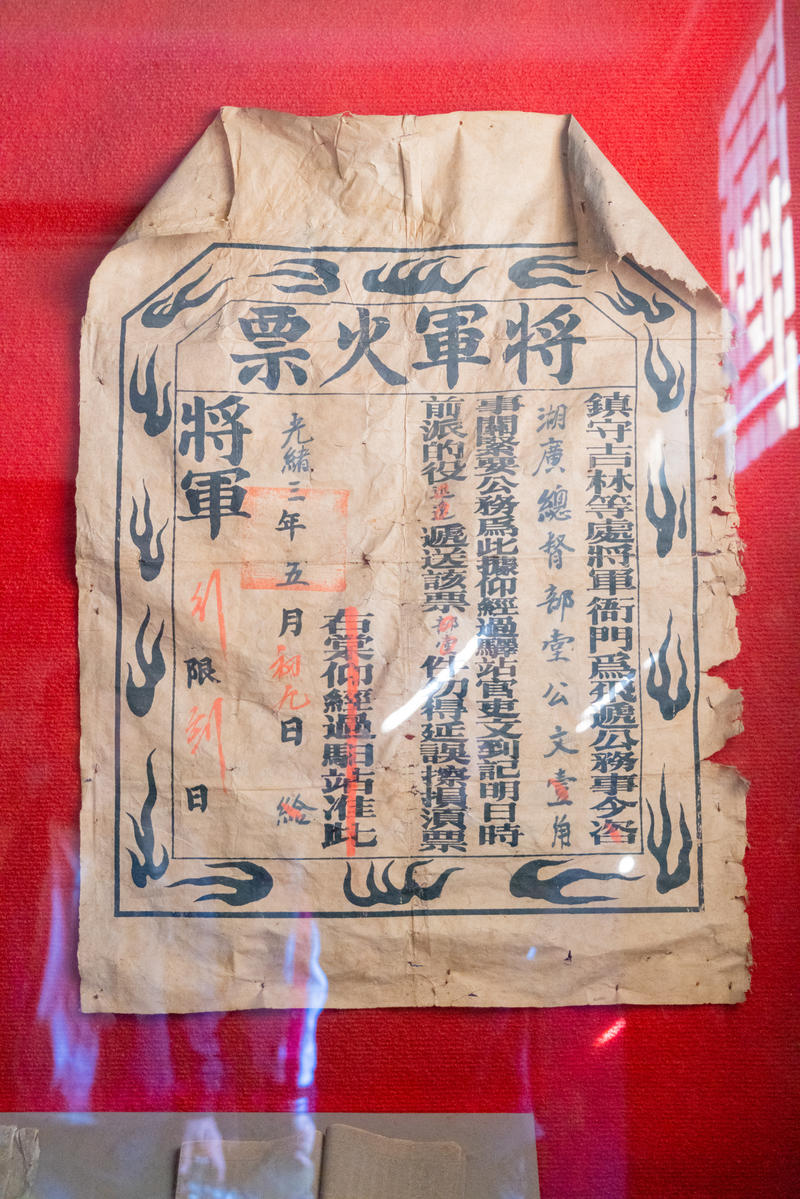 将軍火票
鎮守吉林等處將軍衙門爲飛遞公務事今咨
湖廣總督部堂公文壹角
事關緊要公務爲此據仰經過驛站官吏文到記明日時
前派的役迅速遞送該票部堂件勿得延誤擦損湏票
右票仰經過馹站准此
光緒三年五月初九日給
將軍 限到日